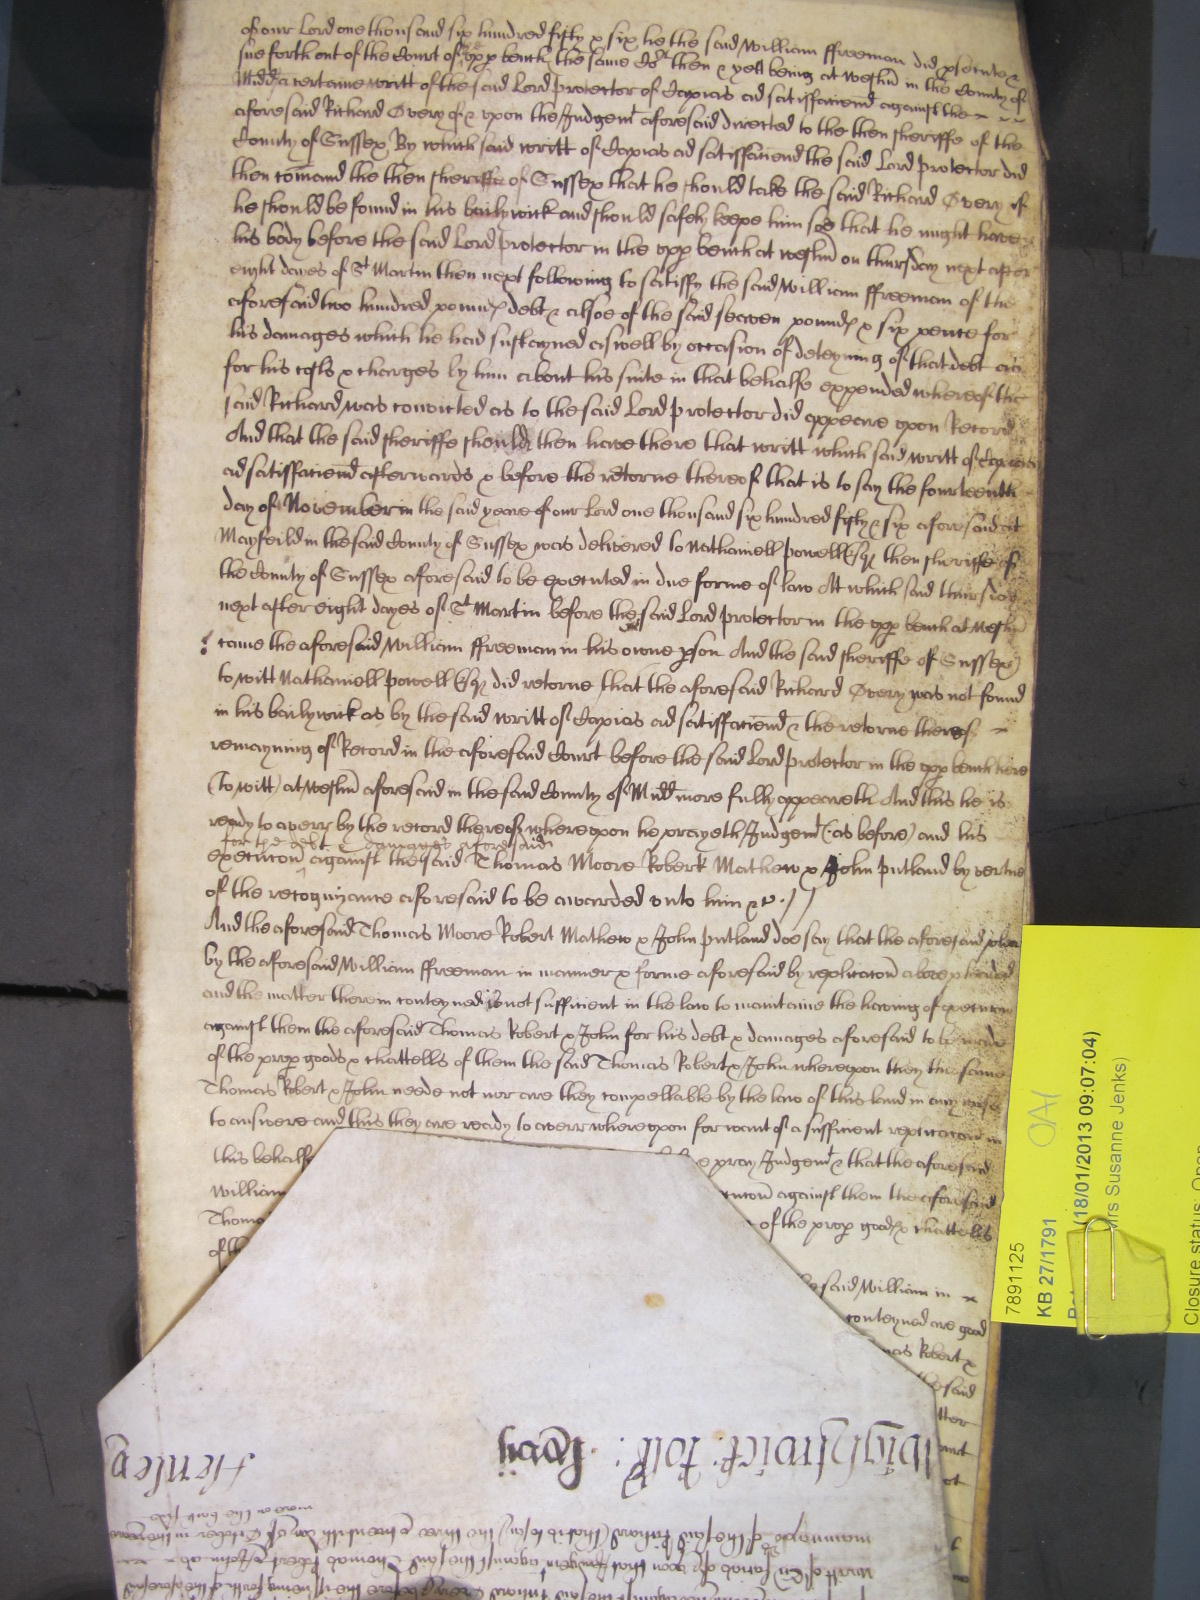 of our Lord one thousand six hundred fifty & six he the said William ffreeman did psecute &
sue forth out of the Court of upp bench the same Co^rt then & yett being at Westm in the County of
Midd a certaine writt of the said Lord Protector of Capias ad satisfaciend against the
aforesaid Richard Overy of & upon the Judgem^t aforesaid directed to the then sheriffe of the
County of Sussex By which said writt of Capias ad satisfaciend the said Lord Protector did
then comand the then sheriffe of Sussex that he should take the said Richard Overy if
he should be found in his bailywick and should safely keepe him soe that he might have
his body before the said Lord Protector in the upp bench at Westm on thursday next after
eight dayes of S^t Martin then next following to satisfy the said William ffreeman of the
aforesaid two hundred pounds debt & alsoe of the said seaven pounds & six pence for
his damages which he had susteyned aswell by occasion of deteyning of that debt as
for his costs & charges by him about his suite in that behalfe expended whereof the
said Richard was convicted as to the said Lord Protector did appeare upon Record
And that the said sheriffe should then have there that writt which said writt of Capias
ad satisfaciend afterwards & before the retorne thereof that is to say the fourteenth
day of November in the said yeare of our Lord one thousand six hundred fifty & six aforesaid at
Mayfeild in the said County of Sussex was delivered to Nathaniell Powell Esq^r then sheriffe of
the County of Sussex aforesaid to be executed in due forme of law Att which said thursday
next after eight dayes of S^t Martin before the said Lord Protector in the upp bench at Westm
came the aforesaid William ffreeman in his owne pson And the said sheriffe of Sussex
to witt Nathaniell Powell Esq^r did retorne that the aforesaid Richard Overy was not found
in his bailywick as by the said writt of Capias ad satisfaciend & the retorne thereof
remayning of Record in the aforesaid Court before the said Lord Protector in the upp bench here
(to witt) at Westm aforesaid in the said County of Midd more fully appeareth And this he is
ready to averr by the record thereof whereupon he prayeth Judgem^t (as before) and his
for the debt & damages aforesaid
execucon against the said Thomas Moore Robert Mathew & John Putland by vertue
of the recognizance aforesaid to be awarded unto him &c
And the aforesaid Thomas Moore Robert Mathew & John Putland doe say that the aforesaid plea
by the aforesaid William ffreeman in manner & forme aforesaid by replicacon above pleaded
and the matter therein conteyned is not sufficient in the law to maintaine the haveing of execucon
against them the aforesaid Thomas Robert & John for his debt & damages aforesaid to be made
of the prop goods & chattells of them the said Thomas Robert & John whereupon they the same
Thomas Robert & John neede not nor are they compellable by the law of this land in any wise
to answere and this they are ready to averr whereupon for want of a sufficient replicacon in
this behalfe pray Judgem^t & that the aforesaid
William against them the aforesaid
of the prop goods & chattells
said William in
conteyned are good
Robert &
the said
7891125
KB 27/1791
(18/01/2013 09:07:04)
Mrs Susanne Jenks)
Closure status: Open
Wightwick
Henley